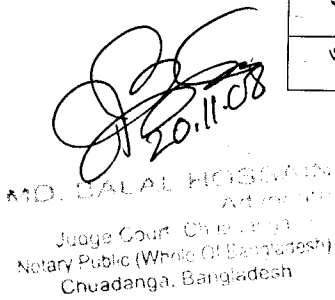 20.11.08
MD. DALAL HOSSAIN
Advocate
Judge Court Chuadanga
Notary Public (Whole Of Bangladesh)
Chuadanga, Bangladesh